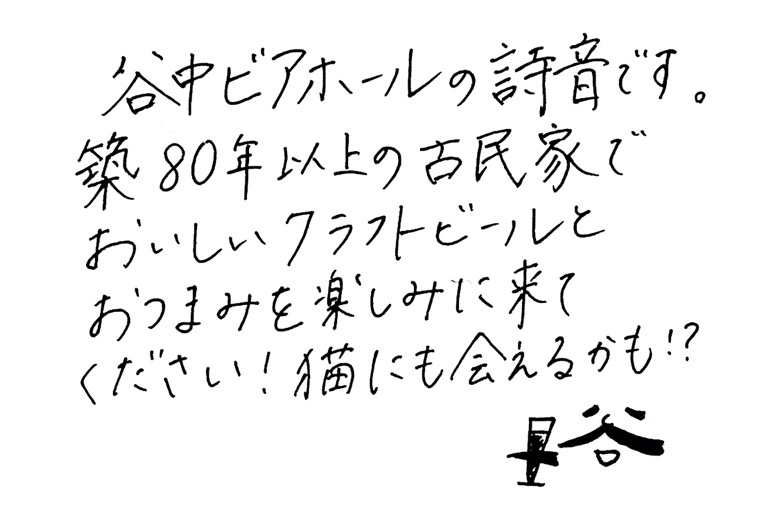 谷中ビアホールの詩音です。
築80年以上の古民家で
おいしいクラフトビールと
おつまみを楽しみに来て
ください！猫にも会えるかも!?
谷